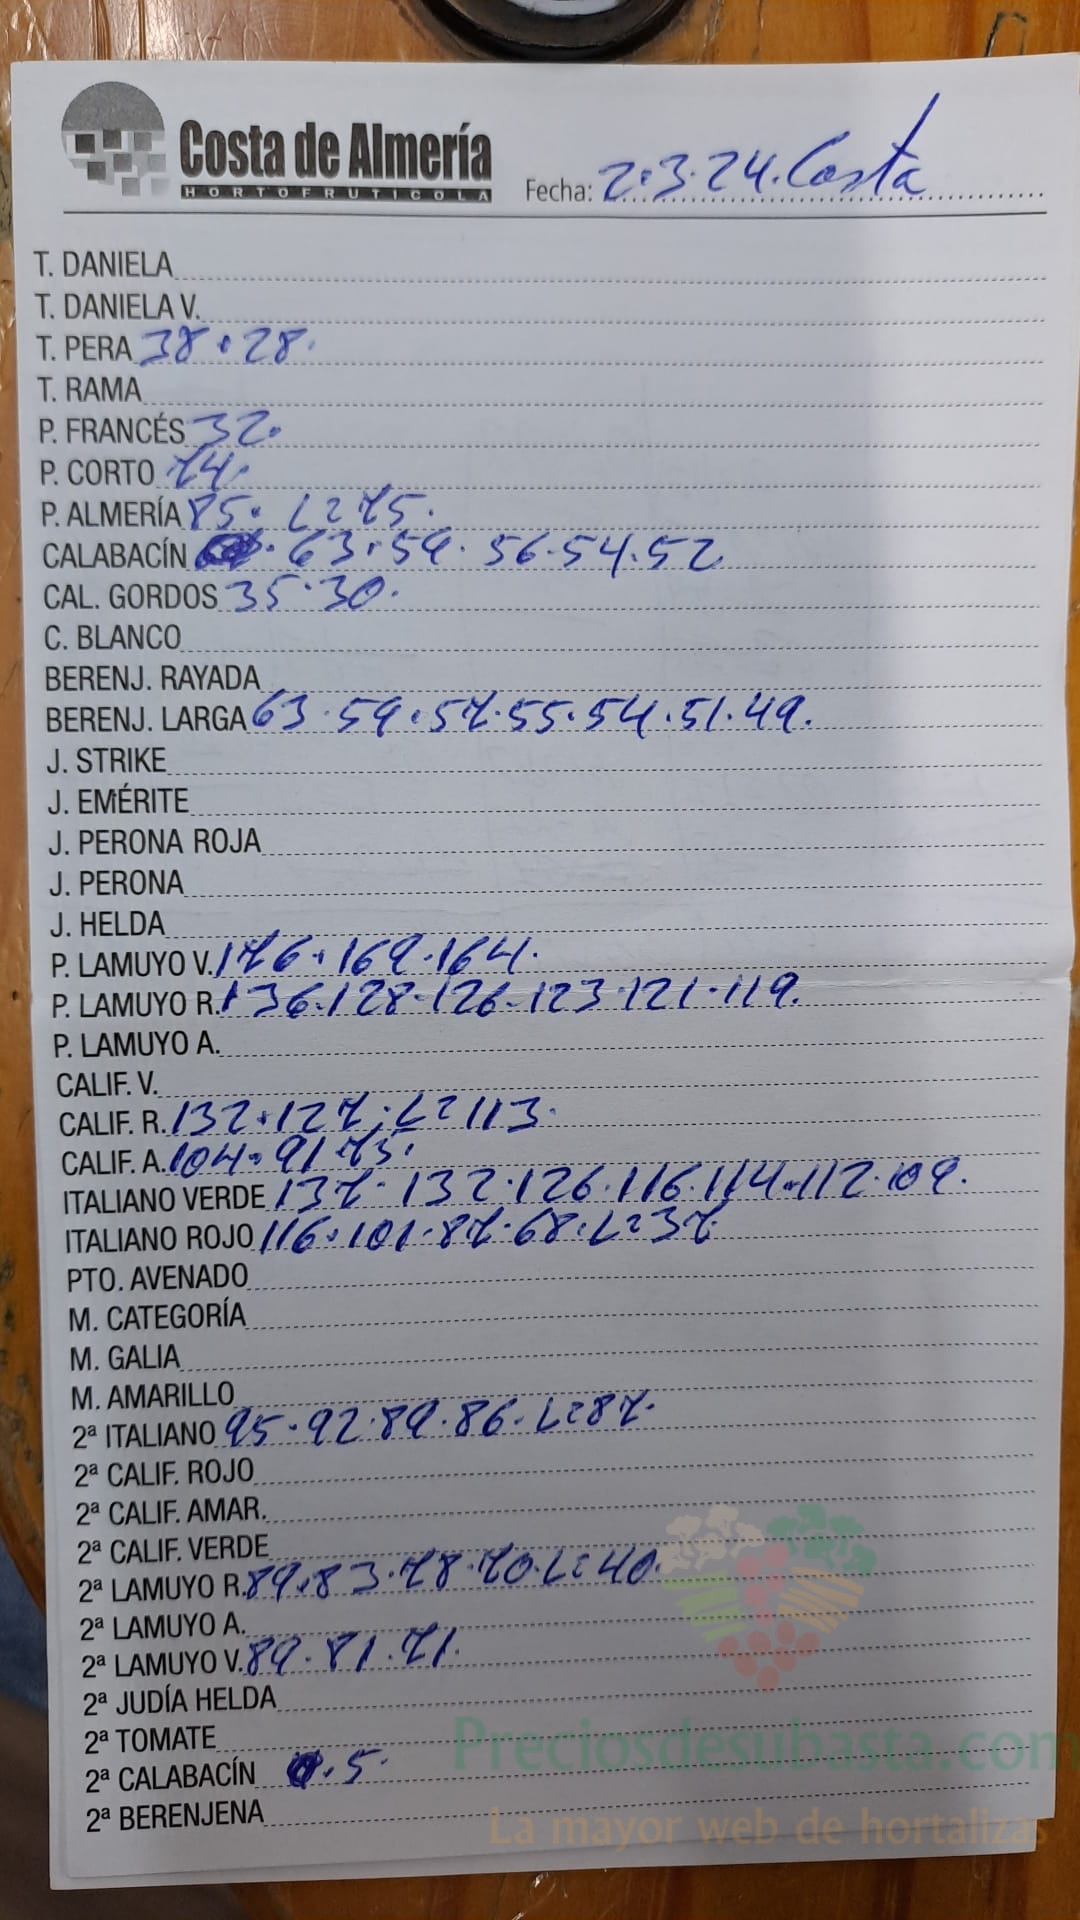 Costa de Almería
HORTOFRUTICOLA
Fecha: 2.3.24. Costa
T. DANIELA
T. DANIELA V.
T. PERA 38.28.
T. RAMA
P. FRANCÉS 32.
P. CORTO 74.
P. ALMERÍA 85. L=75.
CALABACÍN . 63.59. 56.54.52
CAL. GORDOS 35.30.
C. BLANCO
BERENJ. RAYADA
BERENJ. LARGA 63.59.57.55.54.51.49.
J. STRIKE
J. EMÉRITE
J. PERONA ROJA
J. PERONA
J. HELDA
P. LAMUYO V. 176.169.164.
P. LAMUYO R. 136.128.126.123.121.119.
P. LAMUYO A.
CALIF. V.
CALIF. R. 132.127. L=113.
CALIF. A. 104.91.75.
ITALIANO VERDE 137.132.126.116.114.112.109.
ITALIANO ROJO 116.101.87.68.L=37
PTO. AVENADO
M. CATEGORÍA
M. GALIA
M. AMARILLO
2ª ITALIANO 95.92.89.86.L=87.
2ª CALIF. ROJO
2ª CALIF. AMAR.
2ª CALIF. VERDE
2ª LAMUYO R. 89.83.78.70.L=40.
2ª LAMUYO A.
2ª LAMUYO V. 89.81.71.
2ª JUDÍA HELDA
2ª TOMATE
Preciosdesubasta.com
2ª CALABACÍN . 5.
2ª BERENJENA
La mayor web de hortalizas